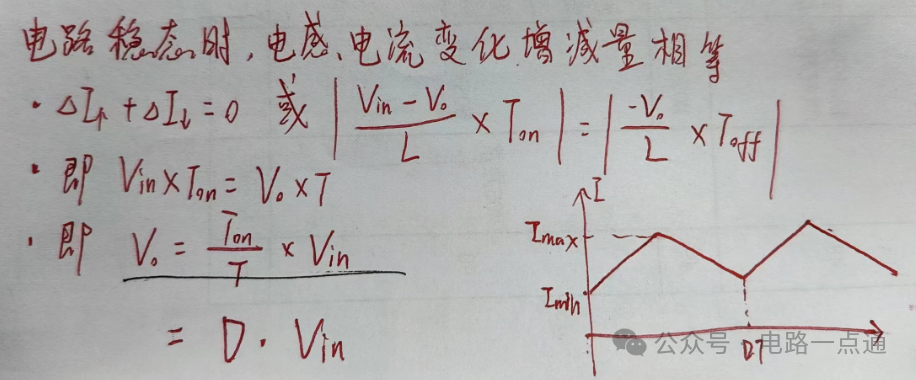 电路稳态时,电感、电流变化增减量相等
· ΔI↑ + ΔI↓ = 0 或 | (Vin - Vo)/L × Ton | = | -Vo/L × Toff |
· 即 Vin × Ton = Vo × T
· 即 Vo = Ton/T × Vin
= D · Vin
I
Imax
Imin
DT
公众号 · 电路一点通